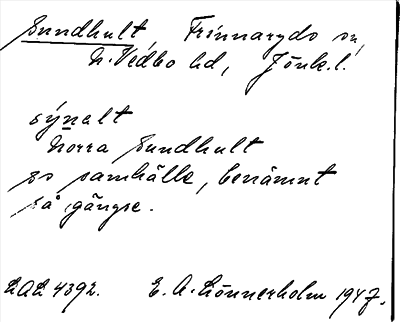 Sundhult, Frinnaryds sn,
N. Vedbo hd, Jönk. l.
synalt
Norra Sundhult
ss samhälle, benämnt
så gängse.
LAL 4392. E. A. Lönnerholm 1947.